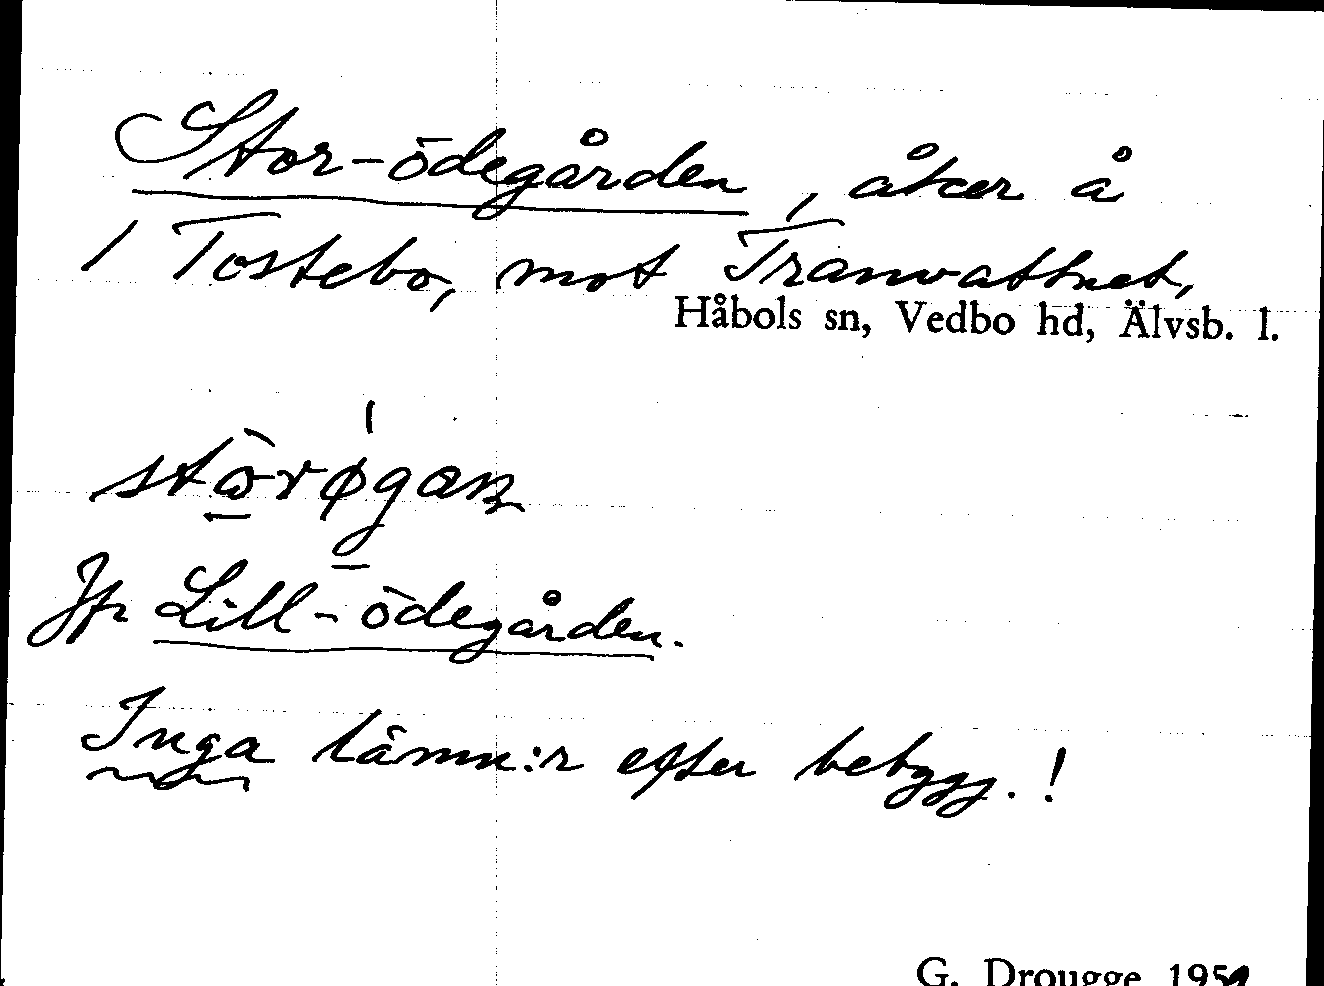 Stor-ödegården, åker å
1 Tostebo, mot Tranvattnet,
Håbols sn, Vedbo hd, Älvsb. l.
Jfr Lill-ödegården.
Inga lämn:r efter bebygg.!
G. Drougge